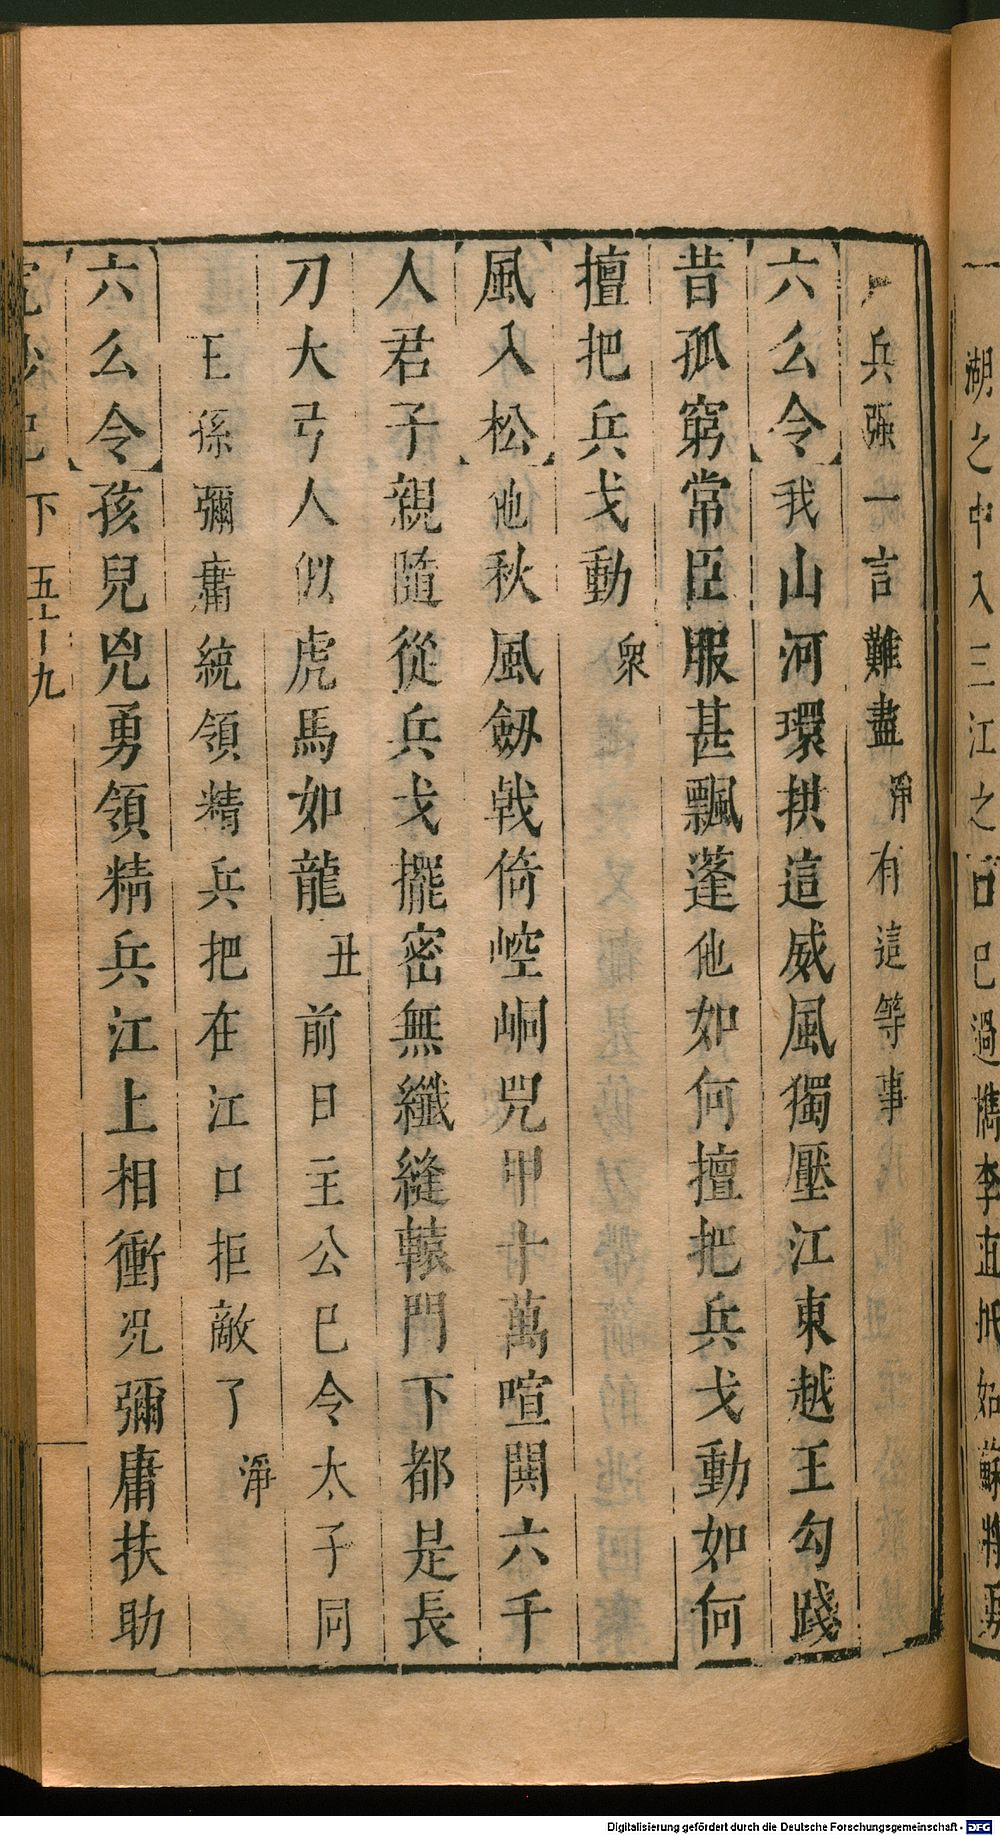 湖之中入三江之口已過檇李直抵姑蘇將
兵強一言難盡淨有這等事
【六么令】我山河環拱這威風獨壓江東越王勾踐
昔孤窮常臣服甚飄蓬他如何擅把兵戈動如何
擅把兵戈動衆
【風入松】他秋風劔戟倚崆峒兕甲十萬喧闐六千
人君子親隨從兵戈擺密無纖縫轅門下都是長
刀大弓人似虎馬如龍丑前日主公已令太子同
王孫彌庸統領精兵把在江口拒敵了淨
【六么令】孩兒兇勇領精兵江上相衝況彌庸扶助
下 五十九
Digitalisierung gefördert durch die Deutsche Forschungsgemeinschaft - DFG